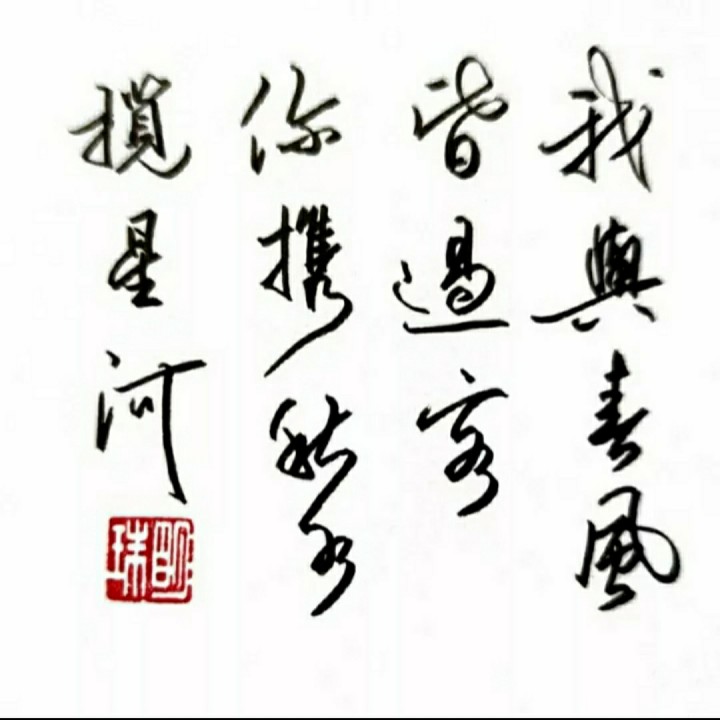 我與春風
皆過客
你携秋水
攬星河
明珠